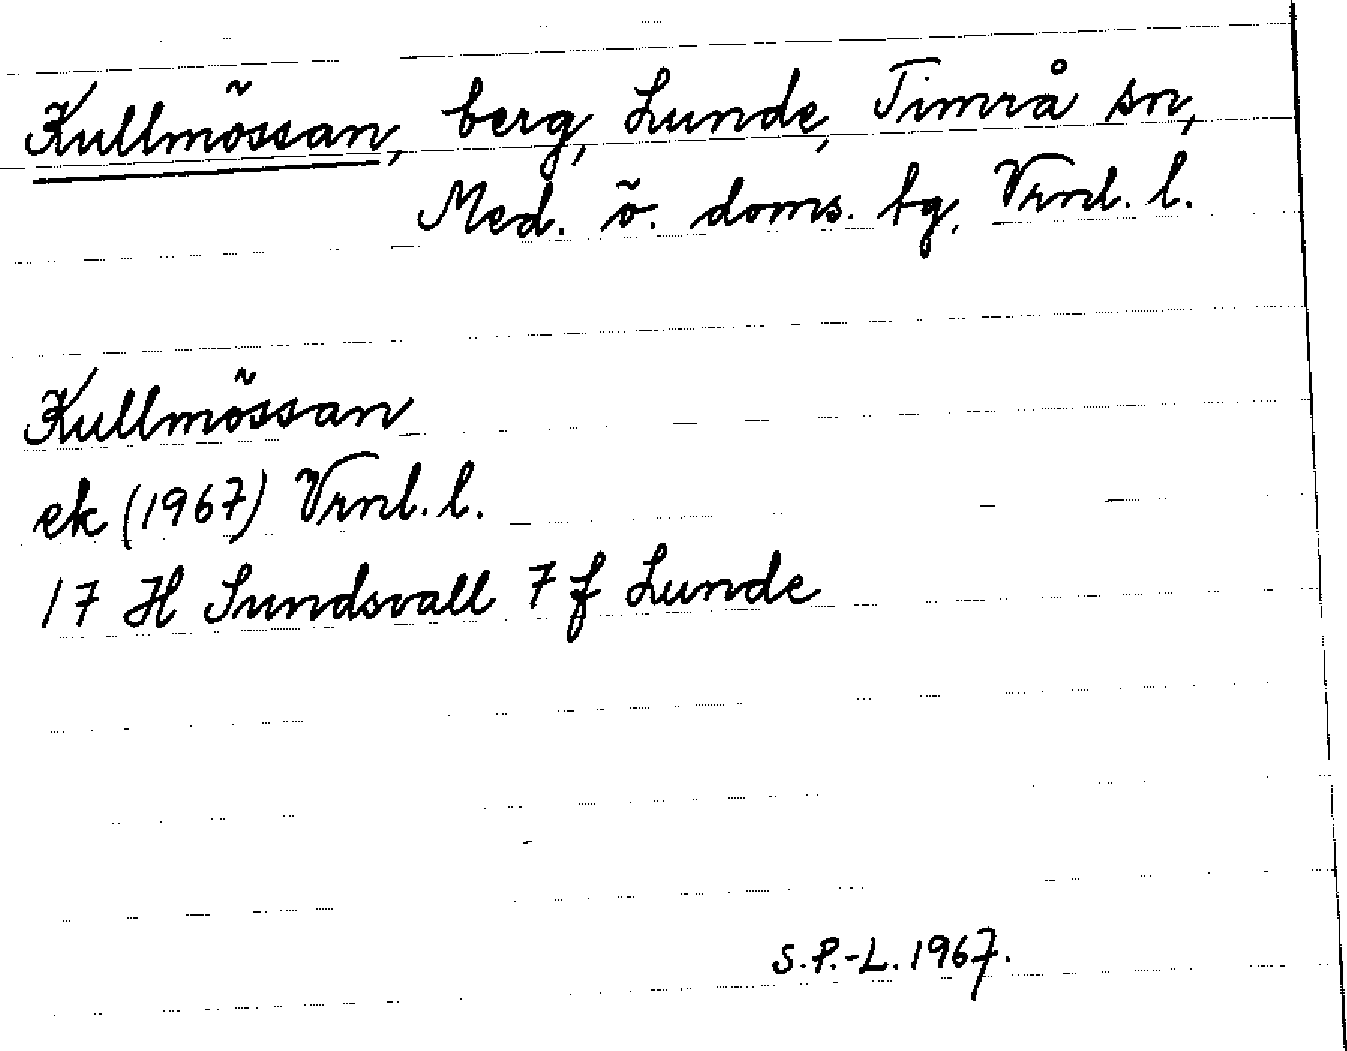 Kullmössan, berg, Lunde, Timrå sn,
Med. ö. doms. tg, Vrnl. l.
Kullmössan
ek (1967) Vrnl. l.
17 H Sundsvall 7 f Lunde
S.P.-L. 1967.